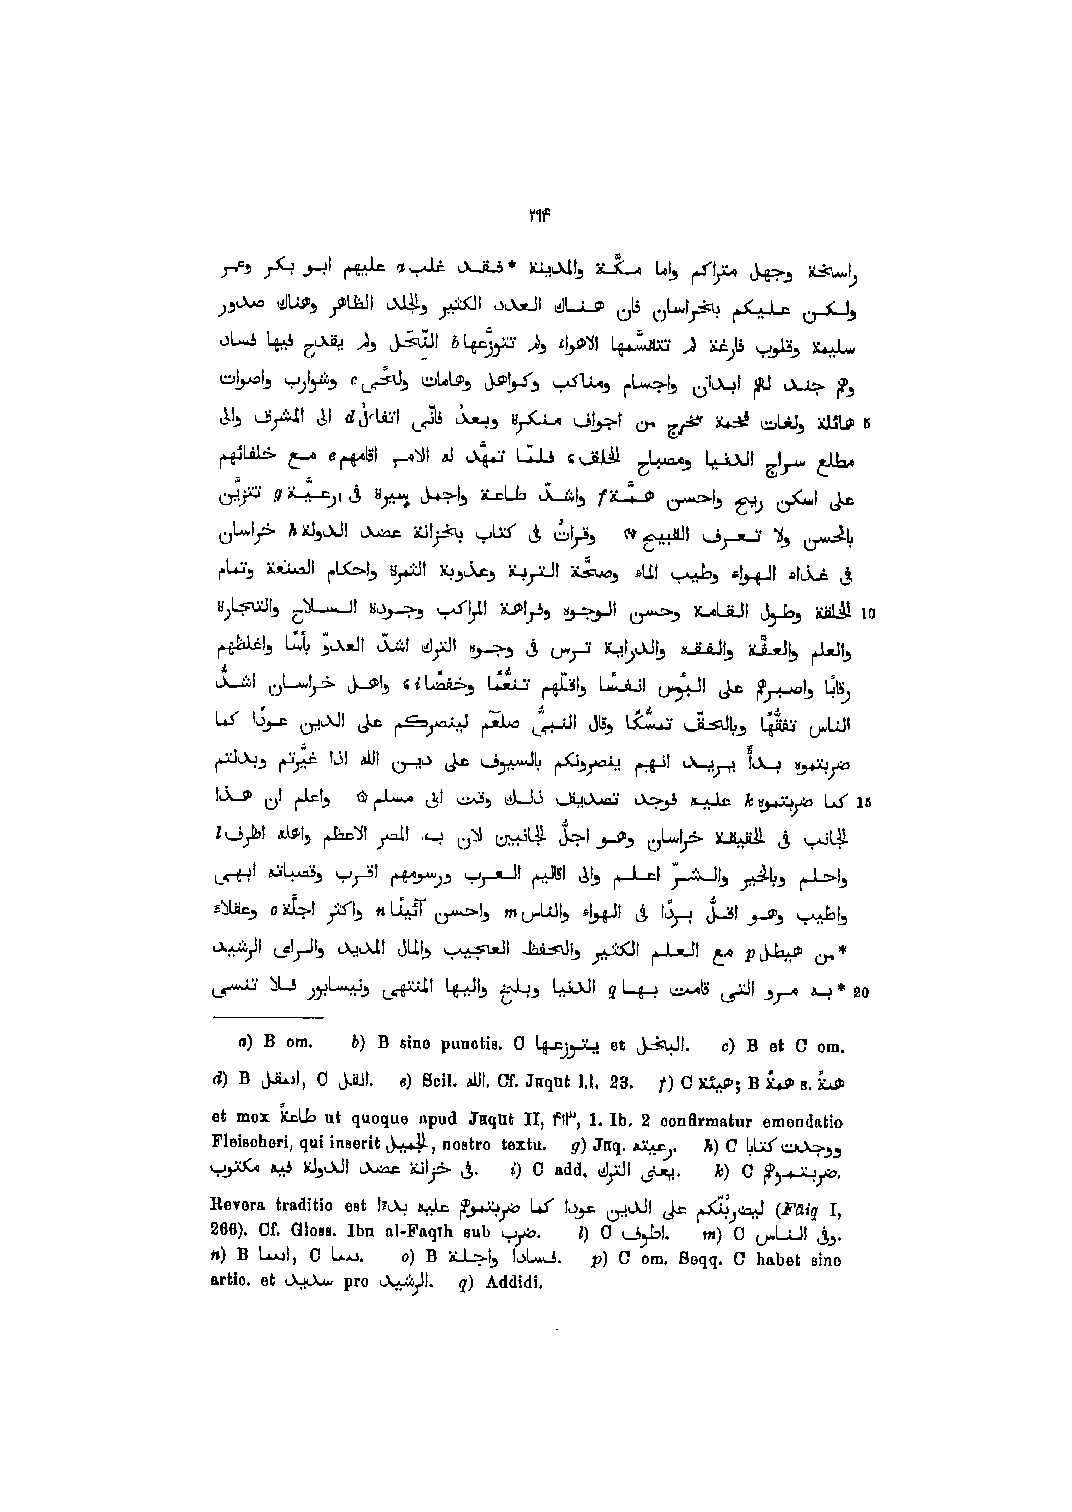 ٢٩٤
راسخة وجهل متراكم واما مكّة والمدينة *فقد غلب a عليهم ابو بكر وعمر
ولكن عليكم بخراسان فان هناك العدد الكثير والجلد الظاهر وهناك صدور
سليمة وقلوب فارغة لم تتقسّمها الاهواء ولم تتوزّعها b النّحَل ولم يقدح فيها فساد
وهم جند لهم ابدان واجسام ومناكب وكواهل وهامات ولُحًى c وشوارب واصوات
5 هائلة ولغات فخمة تخرج من اجواف منكرة وبعدُ فانّى اتفاءل d الى المشرق والى
مطلع سراج الدنيا ومصباح الخلق ، فلمّا تمهّد له الامر اقامهم e مع خلفائهم
على اسكن ريح واحسن همّة f واشدّ طاعة واجمل سيرة فى رعيّة g تتزيّن
بالحسن ولا تعرف القبيح ۞ وقرأتُ فى كتاب بخزانة عضد الدولة h خراسان
فى غذاء الهواء وطيب الماء وصحّة التربة وعذوبة الثمرة واحكام الصنعة وتمام
10 الخلقة وطول القامة وحسن الوجوه وفراهة المراكب وجودة السلاح والتجارة
والعلم والعفّة والفقه والدراية ترس فى وجوه الترك اشدّ العدوّ بأسًا واغلظهم
رقابًا واصبرهم على البؤس انفسًا واقلّهم تنعّمًا وخفضًا i ، واهل خراسان اشدُّ
الناس تفقّهًا وبالحقّ تمسّكًا وقال النبيُّ صلعم ليضربنكم على الدين عودًا كما
ضربتموه بدأً يريد انهم يضرونكم بالسيوف على دين الله اذا غيّرتم وبدلتم
15 كما ضربتموه k عليه فوجد تصديق ذلك وقت ابى مسلم ۞ واعلم ان هذا
الجانب فى الحقيقة خراسان وهو اجلُّ الجانبين لان به المصر الاعظم واهله اظرف l
واحلم وبالخير والشرّ اعلم والى اقاليم العرب ورسومهم اقرب وقصباته ابهى
واطيب وهو اقلُّ بردًا فى الهواء والناس m واحسن آئينًا n واكثر اجلّة o وعقلاء
*من هيطل p مع العلم الكثير والحفظ العجيب والمال المديد والراى الرشيد
20 *به مرو التى قامت بها q الدنيا وبلخ واليها المنتهى ونيسابور فلا تنسى
a) B om. b) B sine punctis. C يتوزعها et البخل. c) B et C om.
d) B اتنقل, C انقل. e) Scil. الله. Cf. Jaqut l.l. 23. f) C هيئة; B هيئة s. هِمَّة
et mox طاعةً ut quoque apud Jaqut II, ۴۱۳, 1. Ib. 2 confirmatur emendatio
Fleischeri, qui inserit الجميل, nostro textu. g) Jaq. رعيته. h) C ووجدت كتابا
فى خزانة عضد الدولة فيه مكتوب. i) C add. يعنى الترك. k) C ضربتموهم.
Revera traditio est ليضربُنّكم على الدين عودا كما ضربتموهم عليه بدءًا (Fāiq I,
266). Cf. Gloss. Ibn al-Faqīh sub ضرب. l) C اطوف. m) C وفى الناس.
n) B انسا, C نسا. o) B فسادا واجلة. p) C om. Seqq. C habet sine
artic. et سديد pro الرشيد. q) Addidi.